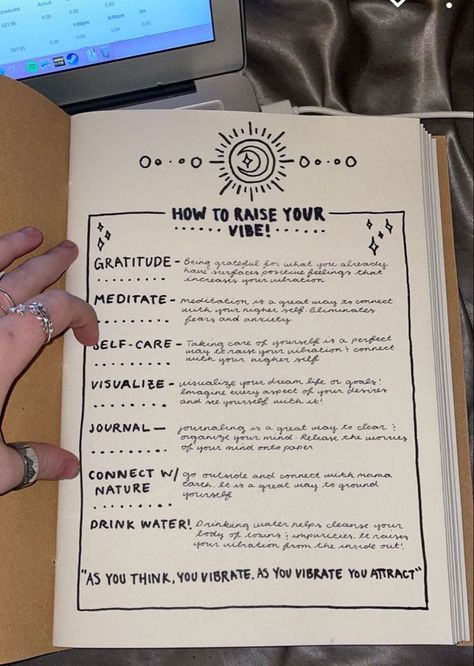 Actual
HOW TO RAISE YOUR
VIBE!
GRATITUDE - Being grateful for what you already
have surfaces positive feelings that
increases your vibration
MEDITATE - meditation is a great way to connect
with your higher self. Eliminates
fears and anxiety
SELF-CARE - Taking care of yourself is a perfect
way to raise your vibration & connect
with your higher self
VISUALIZE - visualize your dream life or goals!
Imagine every aspect of your desires
and see yourself with it!
JOURNAL - journaling is a great way to clear &
organize your mind. Release the worries
of your mind onto paper
CONNECT W/
NATURE
go outside and connect with mama
earth. It is a great way to ground
yourself
DRINK WATER! Drinking water helps cleanse your
body of toxins & impurities. It raises
your vibration from the inside out!
"AS YOU THINK, YOU VIBRATE. AS YOU VIBRATE YOU ATTRACT"